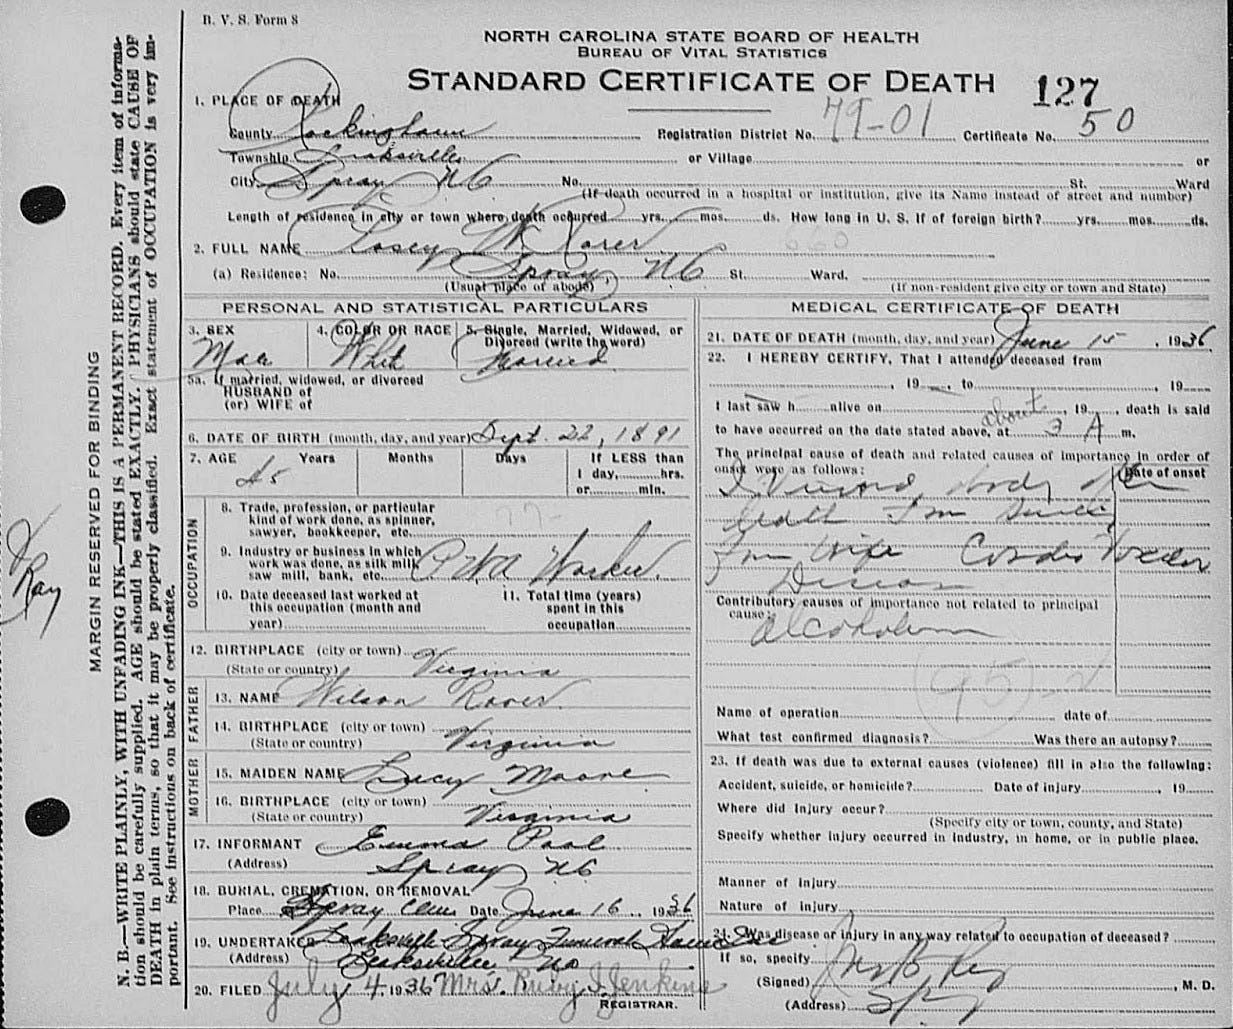 B. V. S. Form 8
NORTH CAROLINA STATE BOARD OF HEALTH
BUREAU OF VITAL STATISTICS
STANDARD CERTIFICATE OF DEATH 127
1. PLACE OF DEATH
County Rockingham Registration District No. 79-01 Certificate No. 50
Township Leaksville or Village or
City Spray NC No. St. Ward
(If death occurred in a hospital or institution, give its Name instead of street and number)
Length of residence in city or town where death occurred yrs. mos. ds. How long in U. S. if of foreign birth? yrs. mos. ds.
2. FULL NAME Losey W. Rorer 660
(a) Residence: No. Spray, NC St. Ward.
(Usual place of abode) (If non-resident give city or town and State)
PERSONAL AND STATISTICAL PARTICULARS
3. SEX 4. COLOR OR RACE 5. Single, Married, Widowed, or Divorced (write the word)
Male Whit Married
5a. If married, widowed, or divorced
HUSBAND of
(or) WIFE of
6. DATE OF BIRTH (month, day, and year) Sept. 22, 1891
7. AGE Years Months Days If LESS than
1 day, hrs.
45 or min.
OCCUPATION
8. Trade, profession, or particular
kind of work done, as spinner,
sawyer, bookkeeper, etc.
9. Industry or business in which
work was done, as silk mill,
saw mill, bank, etc. PWA Worker
10. Date deceased last worked at
this occupation (month and
year)
11. Total time (years)
spent in this
occupation
12. BIRTHPLACE (city or town)
(State or country) Virginia
FATHER
13. NAME Wilson Rorer
14. BIRTHPLACE (city or town)
(State or country) Virginia
MOTHER
15. MAIDEN NAME Lucy Moore
16. BIRTHPLACE (city or town)
(State or country) Virginia
17. INFORMANT Emma Pool
(Address) Spray NC
18. BURIAL, CREMATION, OR REMOVAL
Place Spray Cem Date June 16, 1936
19. UNDERTAKER Leaksville Spray Funeral Home Inc
(Address) Leaksville NC
20. FILED July 4, 1936 Mrs. Ruby I. Jenkins
REGISTRAR.
MEDICAL CERTIFICATE OF DEATH
21. DATE OF DEATH (month, day, and year) June 15, 1936
22. I HEREBY CERTIFY, That I attended deceased from
, 19 , to , 19
I last saw h alive on , 19 , death is said
to have occurred on the date stated above, at about 3 A m.
The principal cause of death and related causes of importance in order of
onset were as follows: Date of onset
I Viewed body after
death
from wife
Contributory causes of importance not related to principal
cause:
alcoholism
95-2
Name of operation date of
What test confirmed diagnosis? Was there an autopsy?
23. If death was due to external causes (violence) fill in also the following:
Accident, suicide, or homicide? Date of injury , 19
Where did injury occur?
(Specify city or town, county, and State)
Specify whether injury occurred in industry, in home, or in public place.
Manner of injury
Nature of injury
24. Was disease or injury in any way related to occupation of deceased?
If so, specify
(Signed) , M. D.
(Address) Spray
MARGIN RESERVED FOR BINDING
N. B.—WRITE PLAINLY, WITH UNFADING INK—THIS IS A PERMANENT RECORD. Every item of informa-
tion should be carefully supplied. AGE should be stated EXACTLY. PHYSICIANS should state CAUSE OF
DEATH in plain terms, so that it may be properly classified. Exact statement of OCCUPATION is very im-
portant. See instructions on back of certificate.